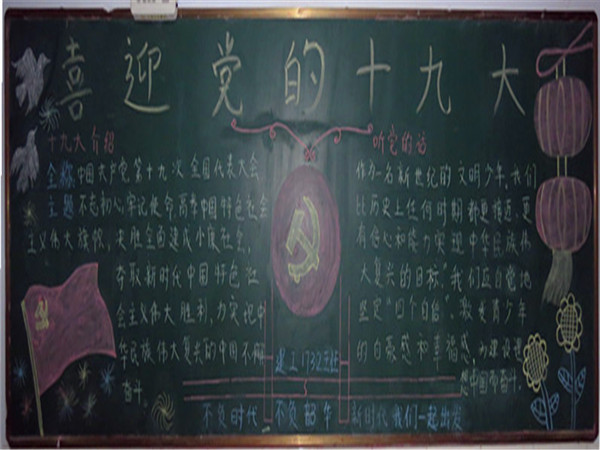 喜迎党的十九大
十九大介绍
全称:中国共产党第十九次全国代表大会
主题:不忘初心,牢记使命,高举中国特色社会
主义伟大旗帜,决胜全面建成小康社会,
夺取新时代中国特色社
会主义伟大胜利,力实现中
华民族伟大复兴的中国不懈
奋斗。
听党的话
作为一名新世纪的文明少年,我们
比历史上任何时期都更接近、更
有信心和能力实现中华民族伟
大复兴的目标。我们应自觉地
坚定"四个自信",激发青少年
的自豪感和幸福感,为建设
中国奋斗。
建工1732班
不负时代 不负韶华 新时代我们一起出发